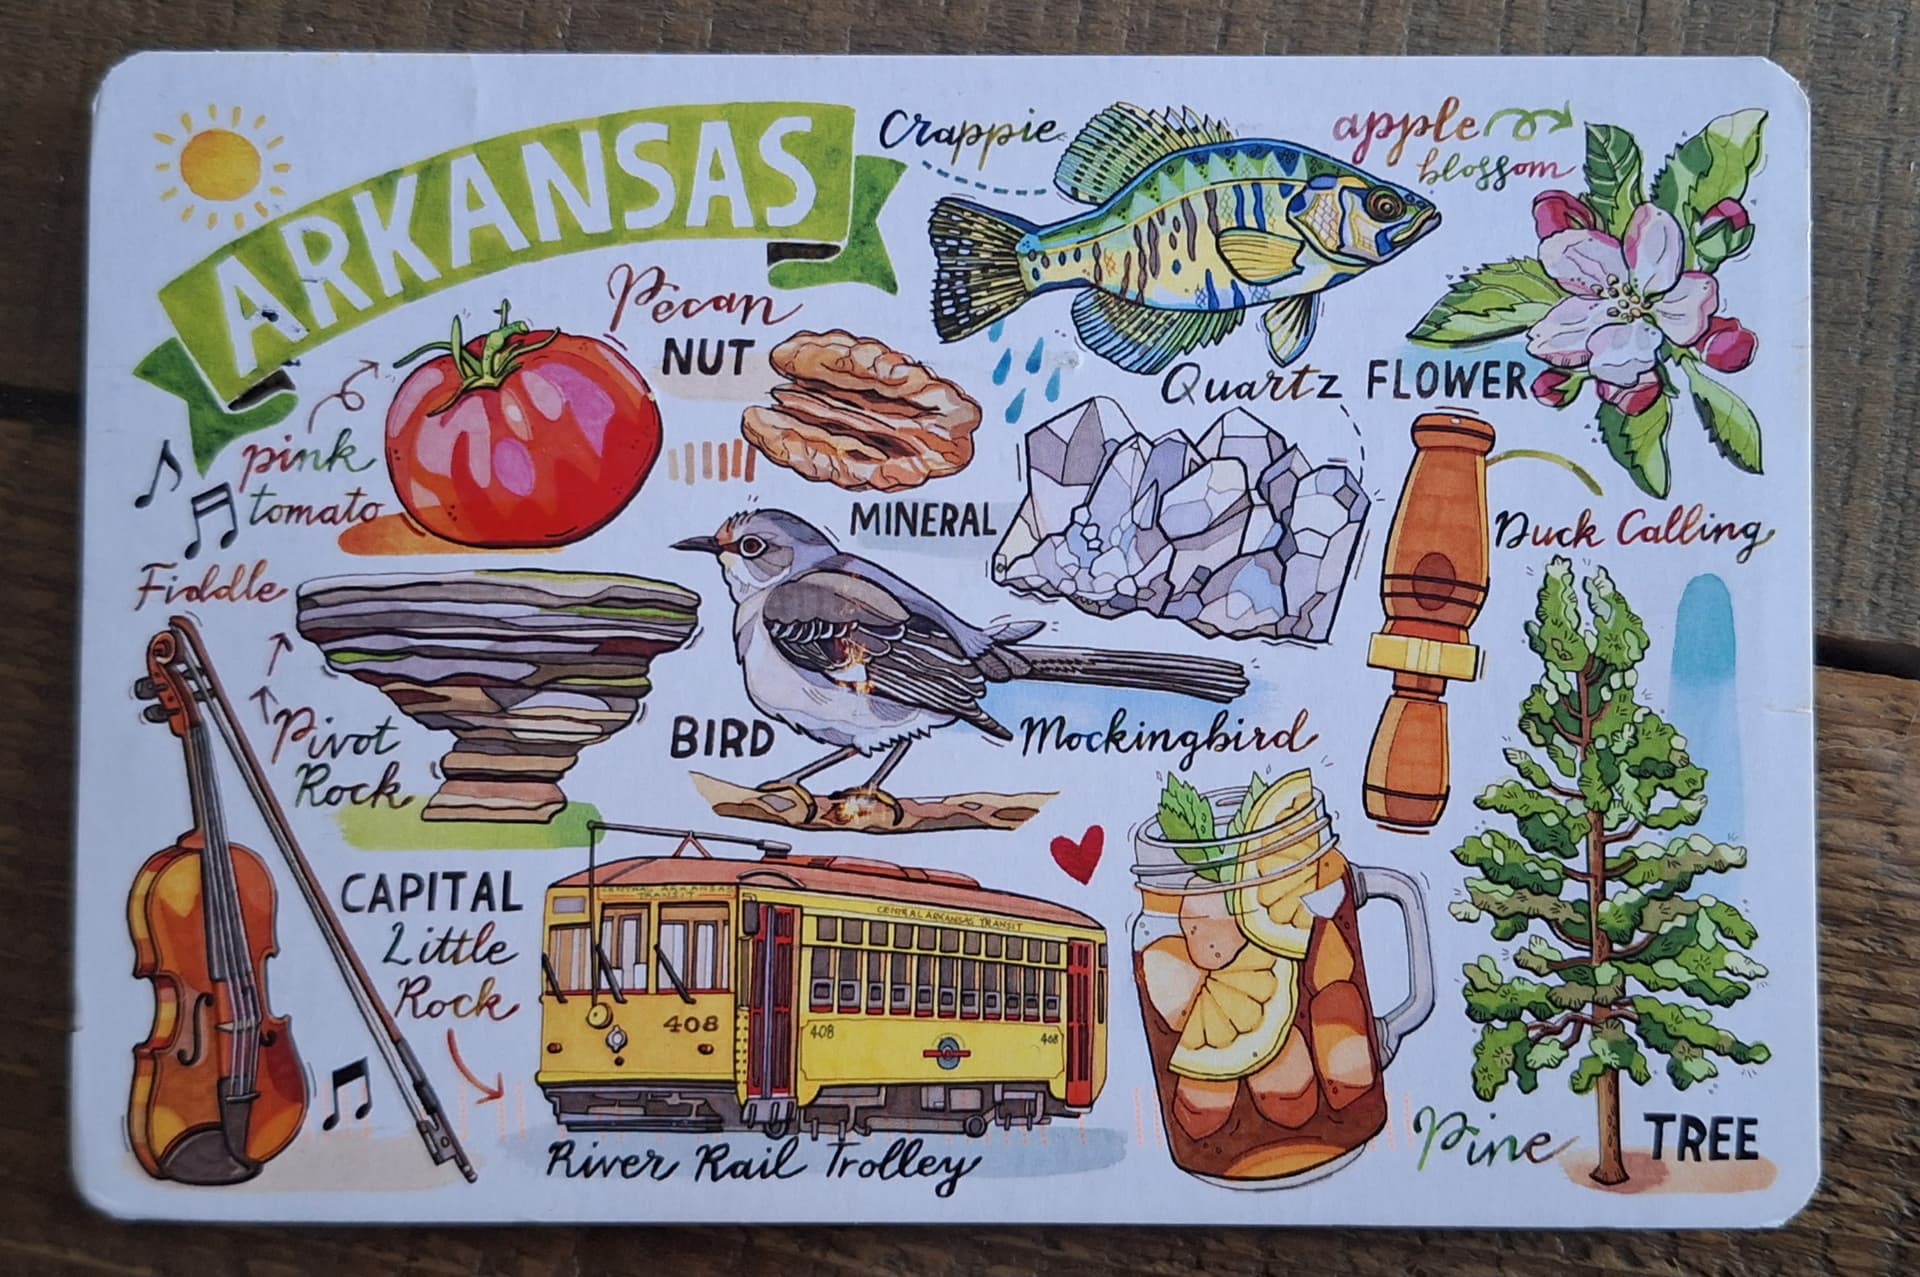 ARKANSAS
Crappie
apple
blossom
Pecan
NUT
Quartz
FLOWER
pink
tomato
MINERAL
Duck Calling
Fiddle
Pivot
Rock
BIRD
Mockingbird
CAPITAL
Little
Rock
CENTRAL ARKANSAS
TRANSIT
CENTRAL ARKANSAS TRANSIT
408
408
408
River Rail Trolley
Pine
TREE